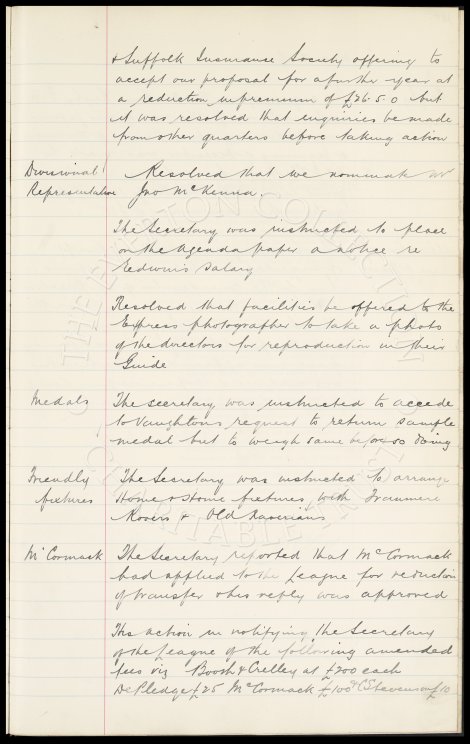 & Suffolk Insurance Society offering to
accept our proposal for a further year at
a reduction in premium of £26.5.0 but
it was resolved that enquiries be made
from other quarters before taking action
Divisional Representative
Resolved that we nominate Mr
Jno McKenna.
The Secretary was instructed to place
on the Agenda paper a notice re
salary
Resolved that facilities be offered to the
Express photographer to take a photo
of the directors for reproduction in their
Guide
Medals
The Secretary was instructed to accede
to Vaughtons request to return sample
medal but to weigh same before so doing
Friendly fixtures
The Secretary was instructed to arrange
Home & Home fixtures with Tranmere
Rovers & Old Xaverians
McCormack
The Secretary reported that McCormack
had applied to the League for reduction
of transfer & his reply was approved
His action in notifying the Secretary
of the League of the following amended
fees viz Booth & Crelley at £200 each
Pledge £25 McCormack £100 & C Stevenson £10
THE EVERTON COLLECTION CHARITABLE TRUST